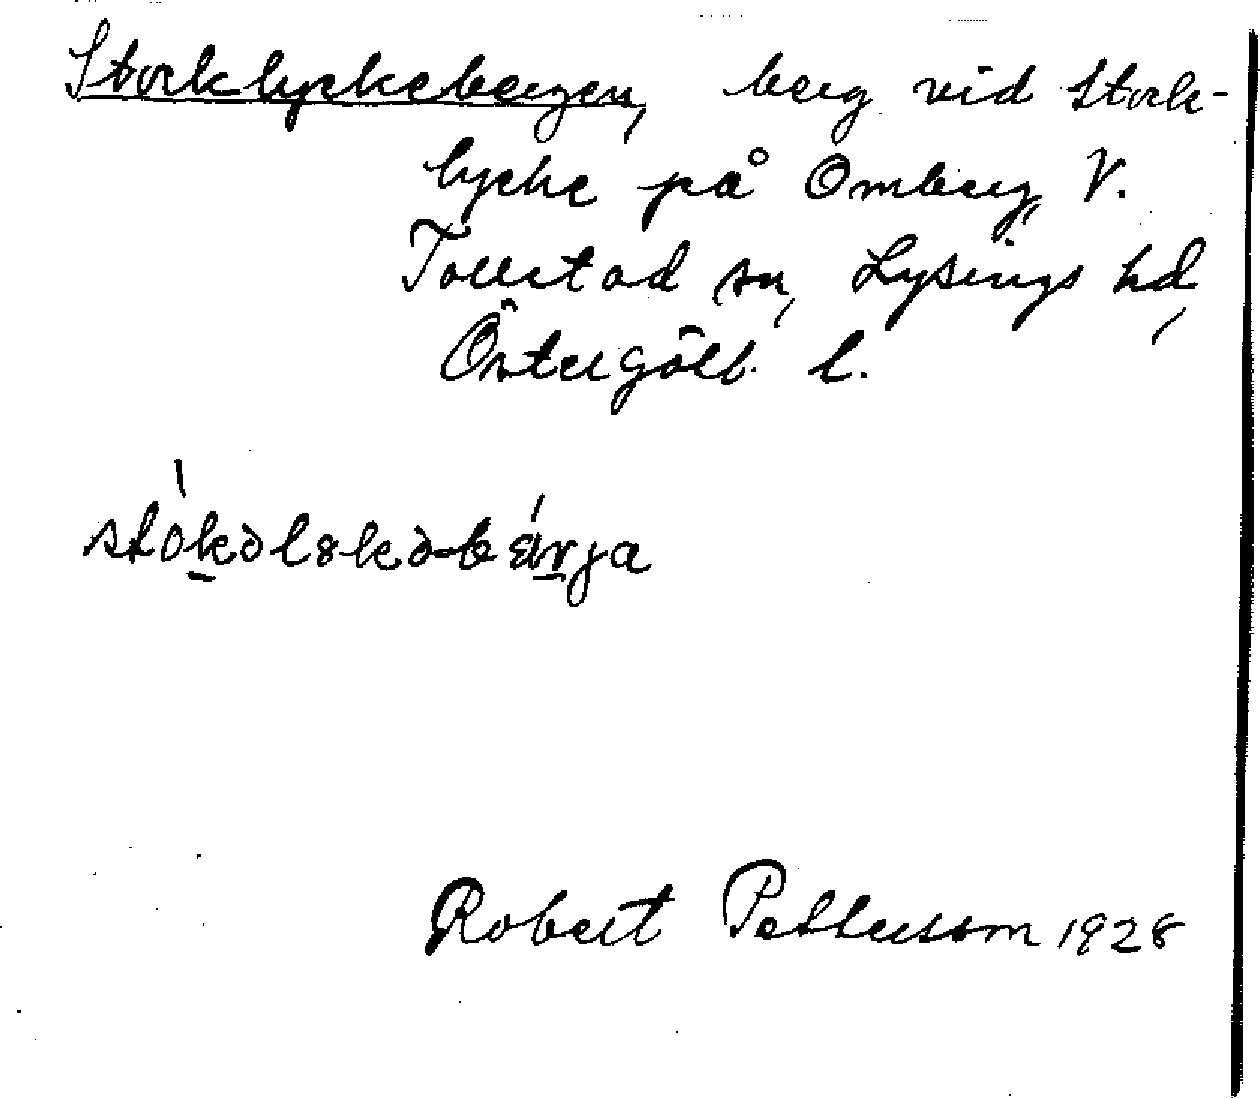 Storklyckebergen, berg vid Stork-
lycke på Omberg, V.
Tollstad sn, Lysings hd,
Östergötl. l.
stókəlskə-bǽrja
Robert Pettersson 1928